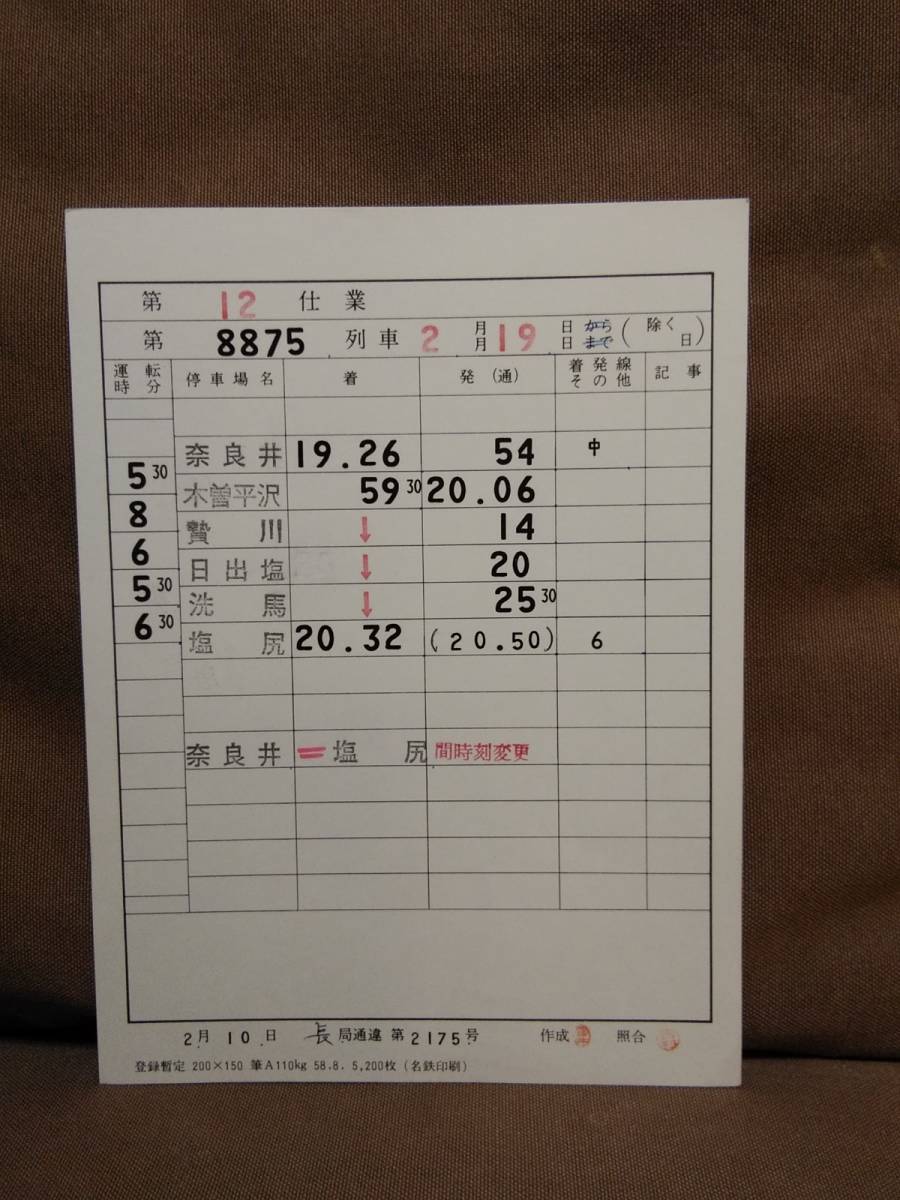 第 12 仕業
第 8875 列車 2 月 月 19 日から 日まで (除く 日)
運転時分 停車場名 着 発(通) 着発線その他 記事
奈良井 19.26 54 中
5 30
木曽平沢 59 30 20.06
8
贄川 ↓ 14
6
日出塩 ↓ 20
5 30
洗馬 ↓ 25 30
6 30
塩尻 20.32 (20.50) 6
奈良井 = 塩尻 間時刻変更
2月 10日 長局通達 第2175号 作成 照合
登録暫定 200×150 筆A110kg 58.8. 5,200枚 (名鉄印刷)